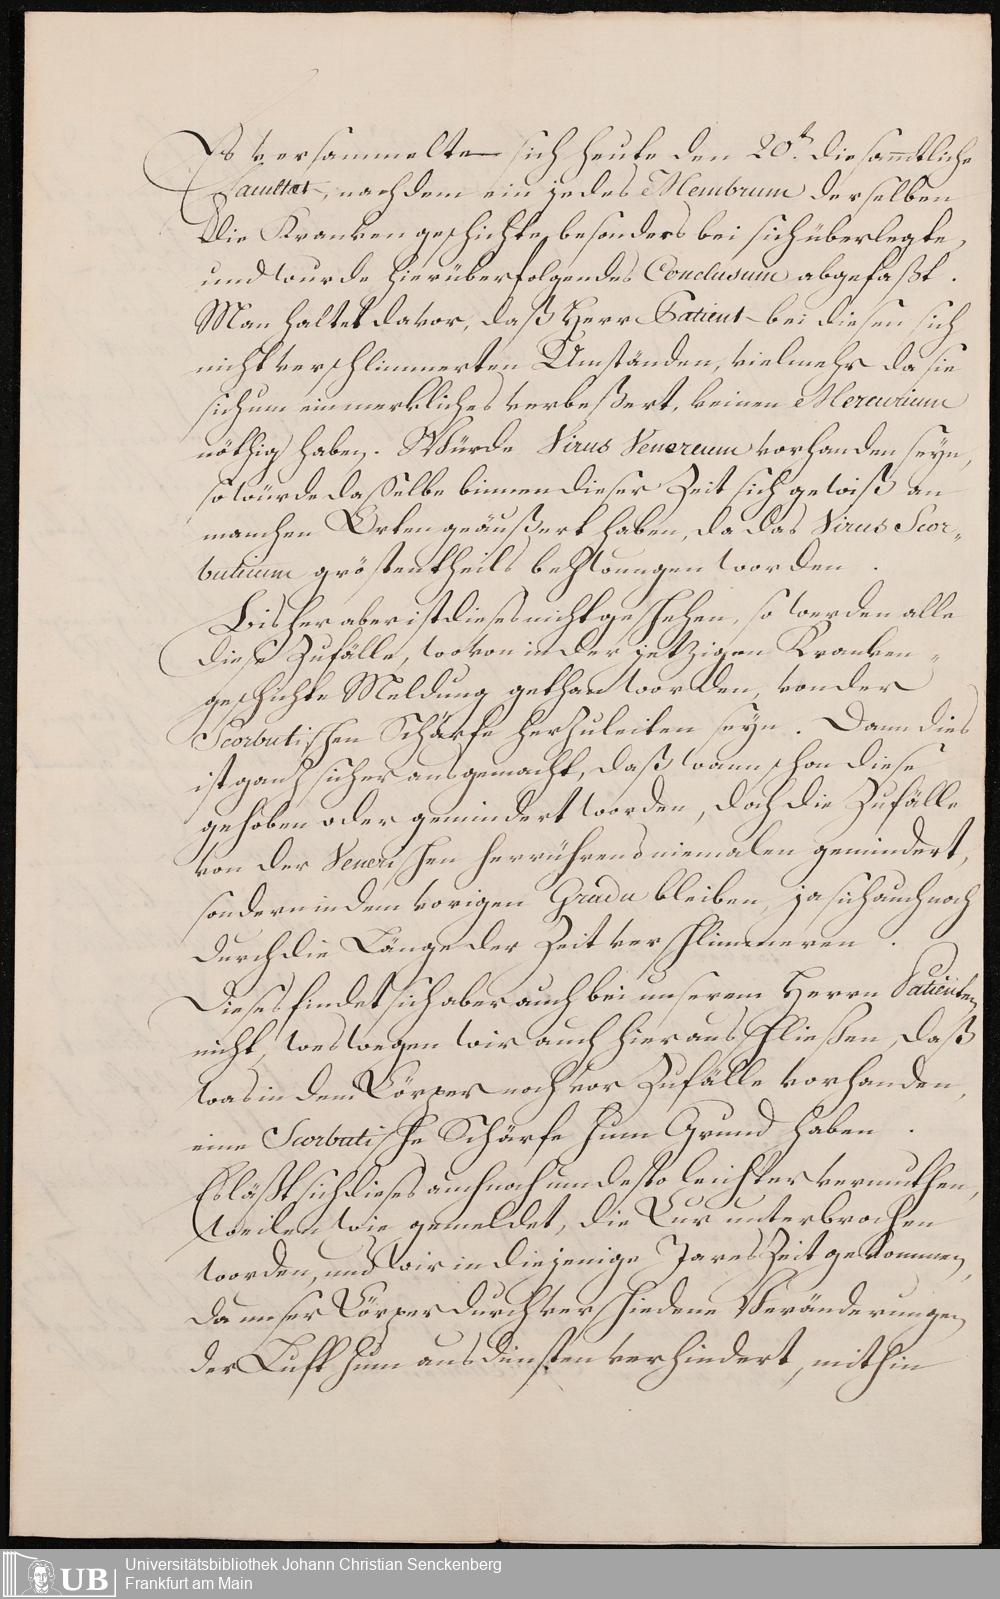 Es versammelte sich heute den 20.t die sam̄tliche
Facultæt, nachdem ein jedes Membrum derselben
die Krankengeschichte besonders bei sich überlegte,
und wurde hierüber folgendes Conclusum abgefaßt.
Man haltet davor, daß Herr Patient bei diesen sich
nicht verschlimmerten Umständen, vielmehr da sie
sich um ein merkliches verbeßert, keinen Mercurium
nöthig haben. Würde Virus Venereum vorhanden seyn,
so würde dasselbe binnen dieser Zeit sich gewiß an
manchen Orten geäußert haben, da das Virus Scor-
buticum gröstentheils bezwungen worden.
Bisher aber ist dieses nicht geschehen, so werden alle
diese Zufälle, wovon in der jetzigen Kranken-
geschichte Meldung gethan worden, von der
Scorbutischen Schärfe herzuleiten seyn. Dann dies
ist ganz sicher ausgemacht, daß wann schon diese
gehoben oder gemindert worden, doch die Zufälle
von der Venerischen herrührend niemalen gemindert,
sondern in dem vorigen Gradu bleiben, ja sich auch noch
durch die Länge der Zeit verschlimmeren.
Dieses findet sich aber auch bei unserem Herrn Patienten
nicht, weswegen wir auch hieraus schließen, daß
was in dem Cörper noch vor Zufälle vorhanden,
eine Scorbutische Schärfe zum Grund haben.
Es läßt sich dieses auch noch um desto leichter vermuthen,
weilen wie gemeldet, die Cur unterbrochen
worden, und wir in diejenige Jares Zeit gekommen,
da unser Cörper durch verschiedene Veränderungen
der Luft zum ausdünsten verhindert, mithin
Universitätsbibliothek Johann Christian Senckenberg
Frankfurt am Main
UB